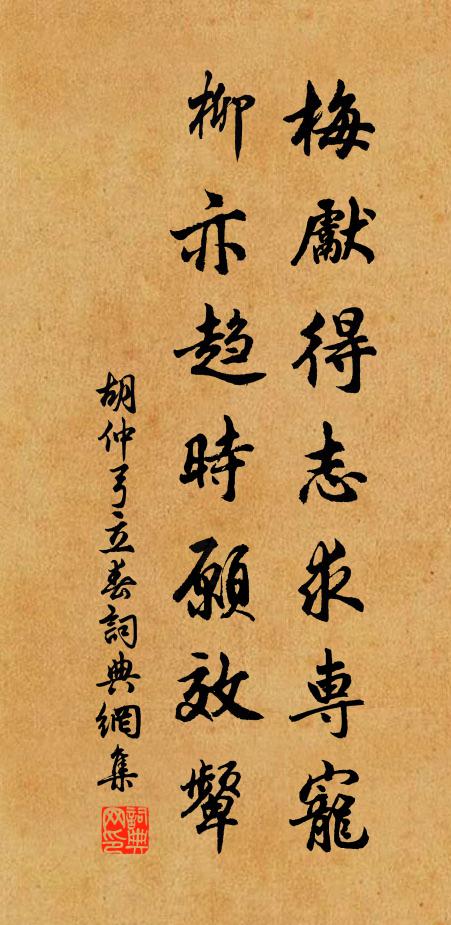 梅獻得志求専寵
柳亦趋時願效顰
胡仲弓立春詞典網集
詞典网印